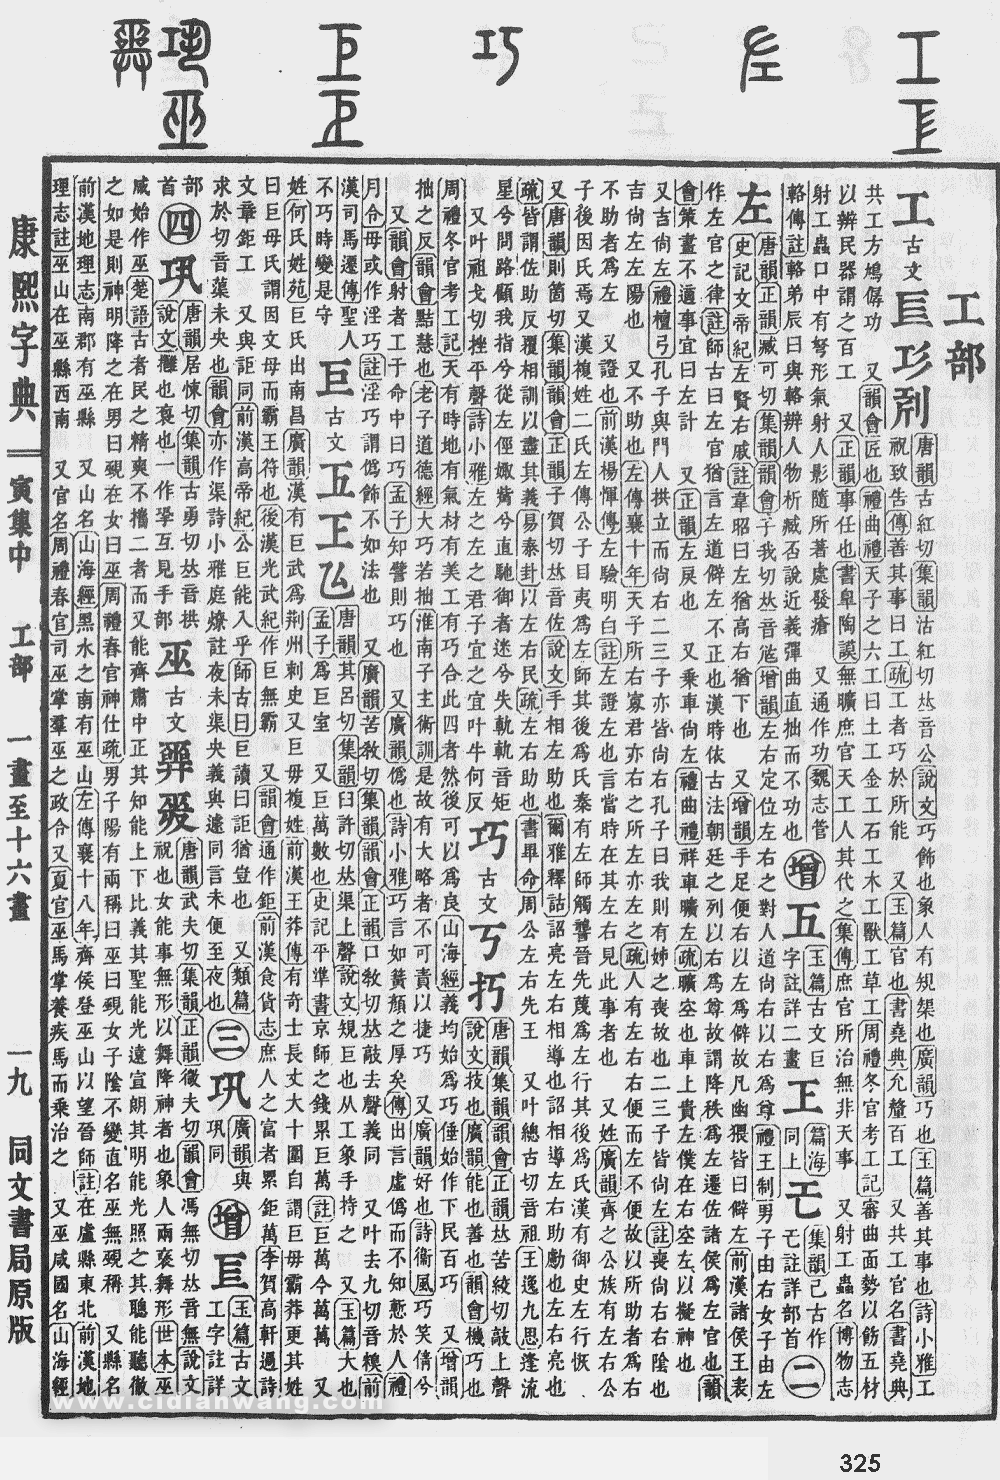 工部
工古文𢒄𢀚𠚖
唐韻古紅切集韻沽紅切𠀤音公說文巧飾也象人有規榘也廣韻巧也玉篇善其事也詩小雅工
祝致告傳善其事曰工疏工者巧於所能 又玉篇官也書堯典允釐百工 又共工官名書堯典
共工方鳩僝功 又韻會匠也禮曲禮天子之六工曰土工金工石工木工獸工草工周禮冬官考工記審曲面勢以飭五材
以辨民器謂之百工 又正韻事任也書臯陶謨無曠庶官天工人其代之集傳庶官所治無非天事 又射工蟲名博物志
射工蟲口中有弩形氣射人影隨所著處發瘡 又通作功魏志管
輅傳註輅弟辰曰與輅辨人物析臧否說近義彈曲直拙而不功也
增
玉篇古文巨
字註詳二畫
篇海
同上
集韻己古作
註詳部首
二
左
唐韻正韻臧可切集韻韻會子我切𠀤音㝾增韻左右定位左右之對人道尚右以右爲尊禮王制男子由右女子由左
史記文帝紀左賢右戚註韋昭曰左猶高右猶下也 又增韻手足便右以左爲僻故凡幽猥皆曰僻左前漢諸侯王表
作左官之律註師古曰左官猶言左道僻左不正也漢時依古法朝廷之列以右爲尊故謂降秩爲左遷佐諸侯爲左官也韻
會策畫不適事宜曰左計 又正韻左戾也 又乗車尚左禮曲禮祥車曠左疏曠空也車上貴左僕在右空左以擬神也
又吉尚左禮檀弓孔子與門人拱立而尚右二三子亦皆尚右孔子曰我則有姊之喪故也二三子皆尚左註喪尚右右隂也
吉尚左左陽也 又不助也左傳襄十年天子所右寡君亦右之所左亦左之疏人有左右右便而左不便故以所助者爲右
不助者爲左 又證也前漢楊惲傳左驗明白註左證左也言當時在其左右見此事者也 又姓廣韻齊之公族有左右公
子後因氏焉又漢複姓二氏左傳公子目夷爲左師其後爲氏秦有左師觸讋晉先蔑爲左行其後爲氏漢有御史左行恢
又唐韻則箇切集韻韻會正韻子賀切𠀤音佐說文手相左助也爾雅釋詁詔亮左右相導也詔相導左右助勴也左右亮也
疏皆謂佐助反覆相訓以盡其義易泰卦以左右民疏左右助也書畢命周公左右先王 又叶總古切音祖王逸九思逢流
星兮問路顧我指兮從左俓娵觜兮直馳御者迷兮失軌軌音矩
又叶祖戈切挫平聲詩小雅左之左之君子宜之宜叶牛何反
巧古文丂㧅
唐韻集韻韻會正韻𠀤苦絞切敲上聲
說文技也廣韻能也善也韻會機巧也
周禮冬官考工記天有時地有氣材有美工有巧合此四者然後可以爲良山海經義均始爲巧倕始作下民百巧 又增韻
拙之反韻會黠慧也老子道德經大巧若拙淮南子主術訓是故有大略者不可責以捷巧 又廣韻好也詩衞風巧笑倩兮
又韻會射者工于命中曰巧孟子知譬則巧也 又廣韻僞也詩小雅巧言如簧顏之厚矣傳出言虛僞而不知慙於人禮
月令毋或作淫巧註淫巧謂僞飾不如法也 又廣韻苦敎切集韻韻會正韻口敎切𠀤敲去聲義同 又叶去九切音糗前
漢司馬遷傳聖人
不巧時變是守
巨古文
唐韻其呂切集韻臼許切𠀤渠上聲說文規巨也从工象手持之 又玉篇大也
孟子爲巨室 又巨萬數也史記平準書京師之錢累巨萬註巨萬今萬萬 又
姓何氏姓苑巨氏出南昌廣韻漢有巨武爲荆州刺史又巨毋複姓前漢王莽傳有奇士長丈大十圍自謂巨毋霸莽更其姓
曰巨毋氏謂因文母而霸王符也後漢光武紀作巨無霸 又韻會通作鉅前漢食貨志庶人之富者累鉅萬李賀高軒過詩
文章鉅工 又與詎同前漢高帝紀公巨能入乎師古曰巨讀曰詎猶豈也 又類篇
求於切音蕖未央也韻會亦作渠詩小雅庭燎註夜未渠央義與遽同言未便至夜也
三
巩
廣韻與
巩同
增
玉篇古文
工字註詳
部
首
四
巩
唐韻居悚切集韻古勇切𠀤音拱
說文㩴也褱也一作㧬互見手部
巫古文
唐韻武夫切集韻正韻微夫切韻會馮無切𠀤音無說文
祝也女能事無形以舞降神者也象人兩褎舞形世本巫
咸始作巫楚語古者民之精爽不攜二者而又能齊肅中正其知能上下比義其聖能光遠宣朗其明能光照之其聰能聽徹
之如是則神明降之在男曰覡在女曰巫周禮春官神仕疏男子陽有兩稱曰巫曰覡女子隂不變直名巫無覡稱 又縣名
前漢地理志南郡有巫縣 又山名山海經黑水之南有巫山左傳襄十八年齊侯登巫山以望晉師註在盧縣東北前漢地
理志註巫山在巫縣西南 又官名周禮春官司巫掌羣巫之政令又夏官巫馬掌養疾馬而乗治之 又巫咸國名山海經
康熙字典
寅集中 工部 一畫至十六畫
一九 同文書局原版
www.cidianwang.com
325